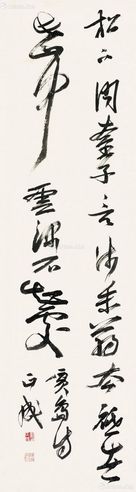 松下問童子言師采藥去祗在
此山中雲深不知處
賈島詩